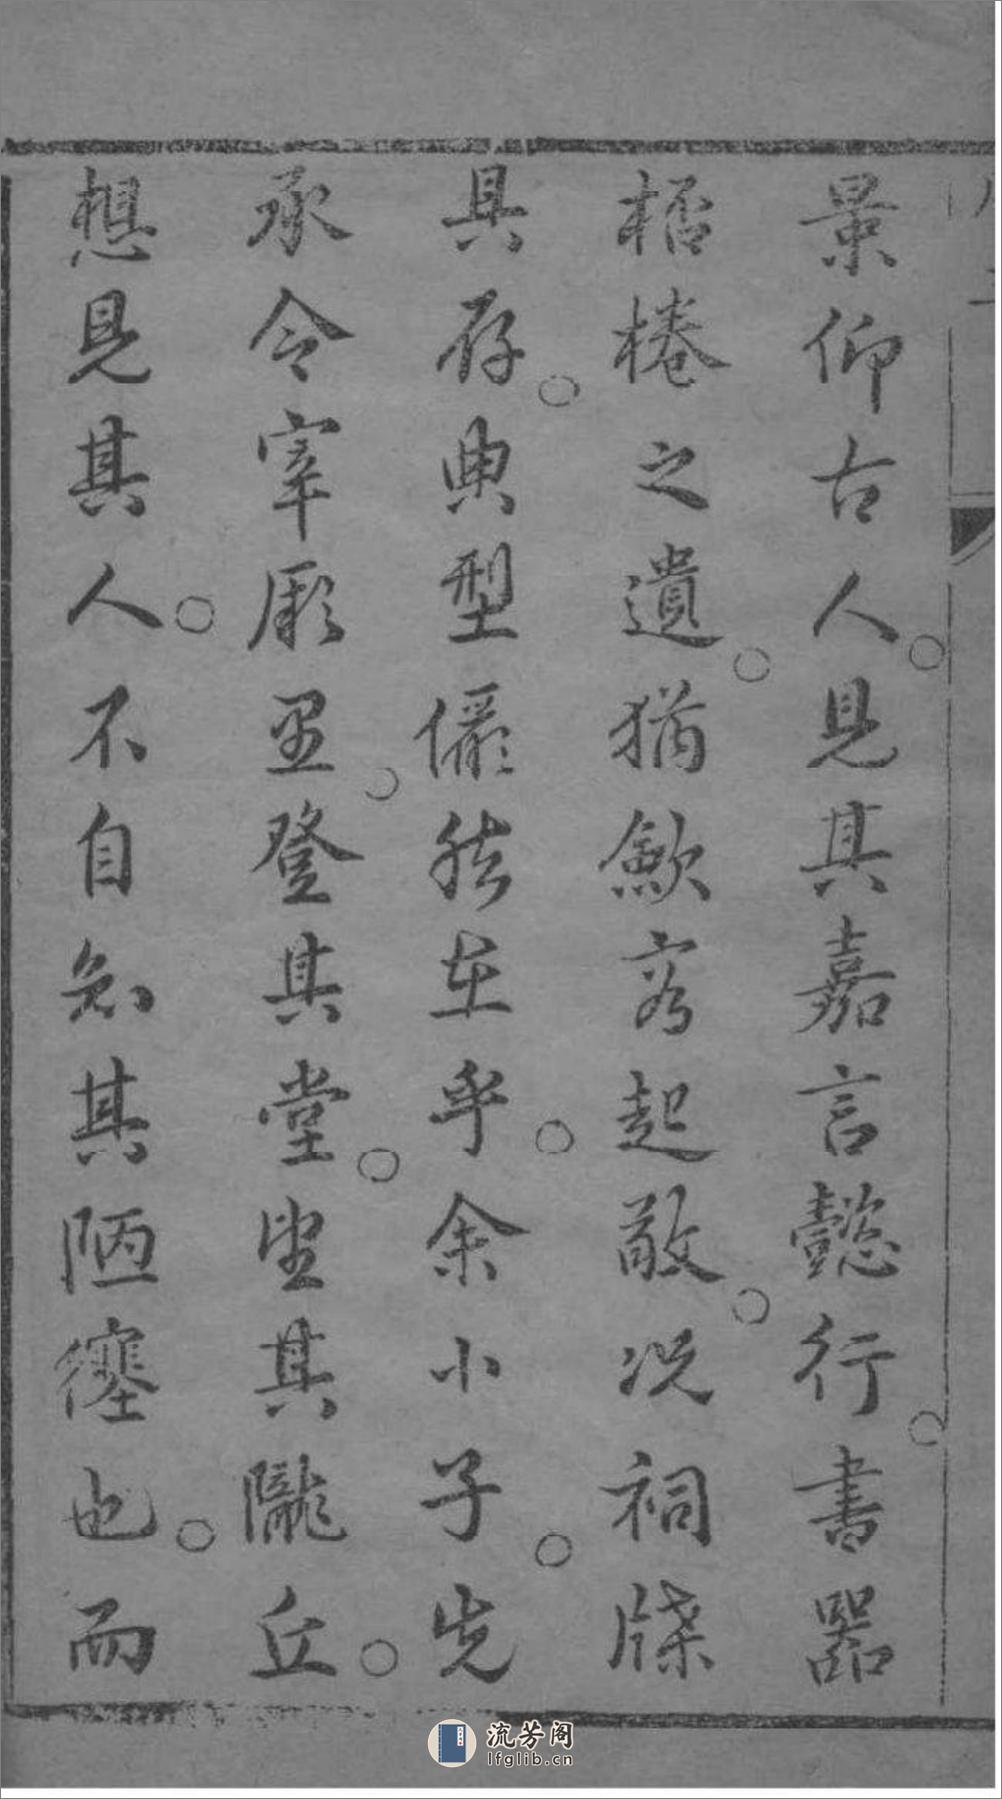 景仰古人。見其嘉言懿行。書器
桮棬之遺。猶歛容起敬。況祠牒
具存。典型儼然在乎。余小子。先
承令宰厥邑。登其堂。望其隴丘。
想見其人。不自知其陋㦬也。而
流芳阁
lfglib.cn